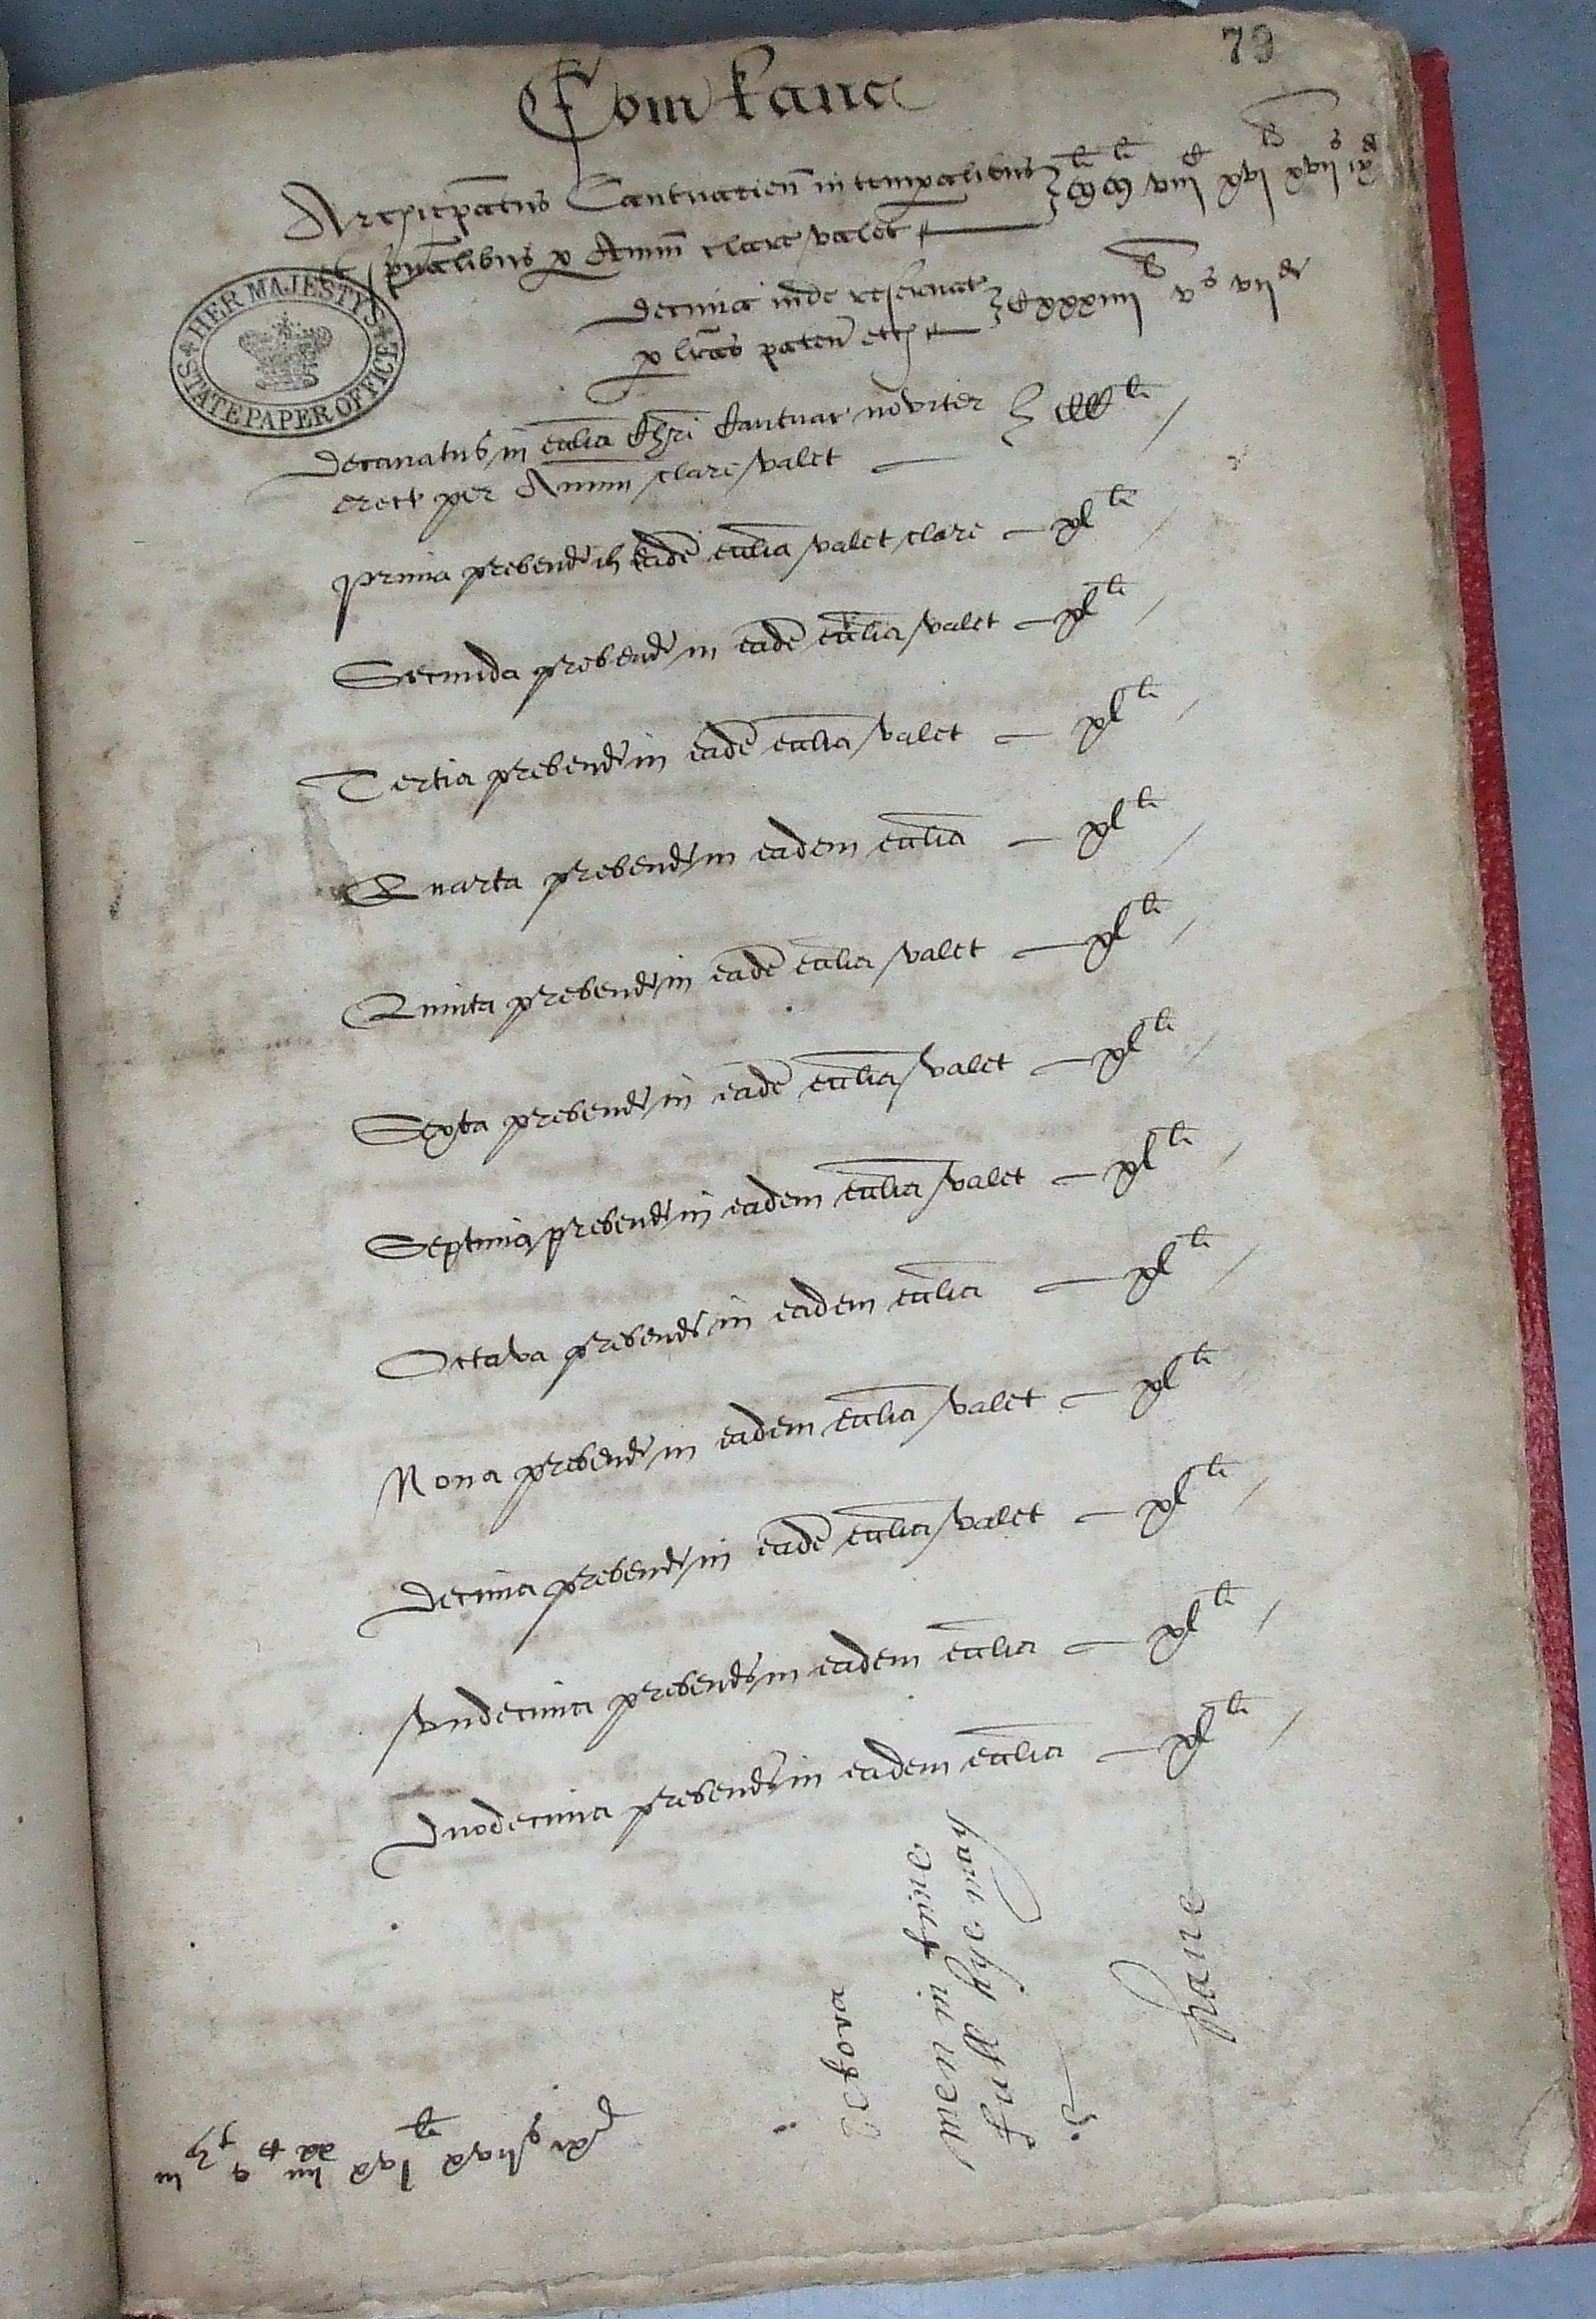 79
Com Kanc
Archiepatus Cantuarien in temporalibus
et spualibus p Annu clare valet
xvij s ix d
Decima inde reservat
p lras paten etc
Cxxxiiij li v s vij d
HER MAJESTYS
STATE PAPER OFFICE
Decanatus in ecclia Chri Cantuar noviter CCC li
erect per Annum clare valet
Prima prebend in eade ecclia valet clare — xl li
Secunda prebend in eade ecclia valet — xl li
Tertia prebend in eade ecclia valet — xl li
Quarta prebend in eadem ecclia — xl li
Quinta prebend in eade ecclia valet — xl li
Sexta prebend in eade ecclia valet — xl li
Septima prebend in eadem ecclia valet — xl li
Octava prebend in eadem ecclia — xl li
Nona prebend in eadem ecclia valet — xl li
Decima prebend in eade ecclia valet — xl li
Undecima prebend in eadem ecclia — xl li
Duodecima prebend in eadem ecclia — xl li
hyc may
Kanc